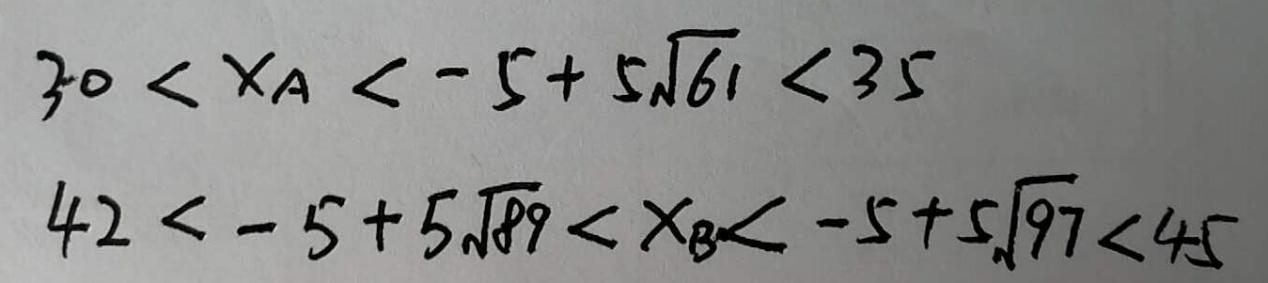 30 < X_A < -5 + 5√61 < 35
42 < -5 + 5√89 < X_B < -5 + 5√97 < 45